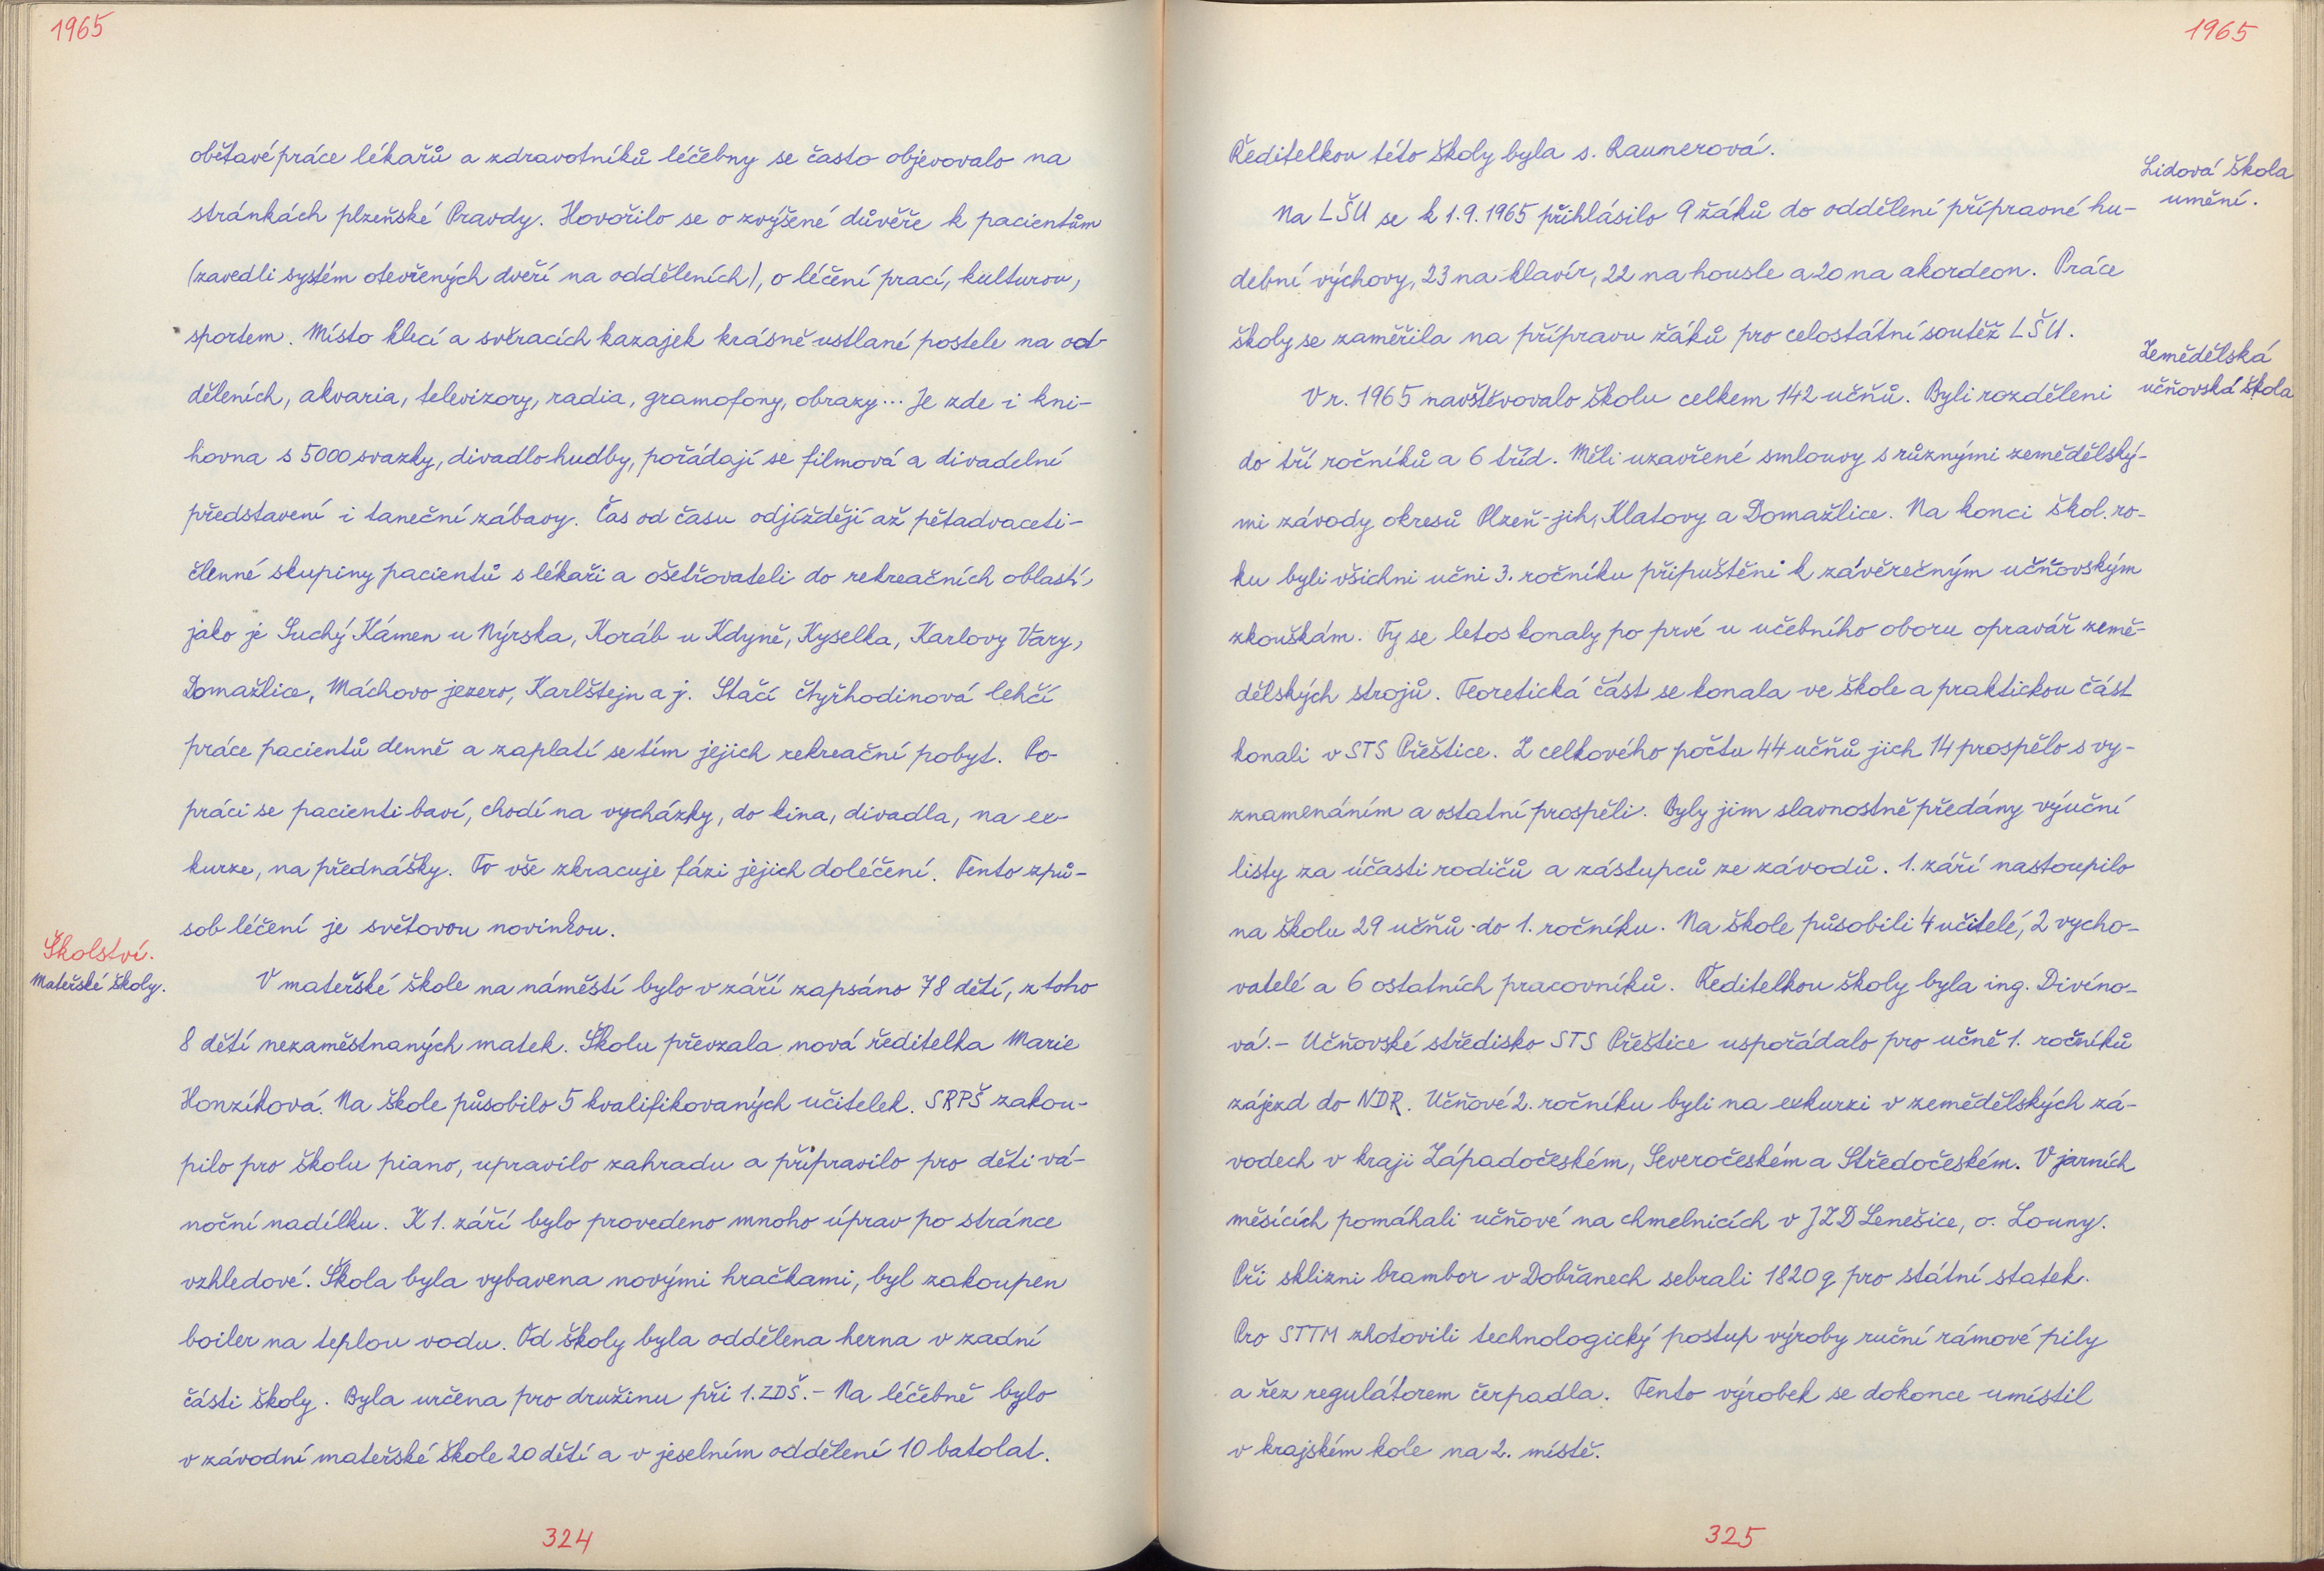 1965
obětavé práce lékařů a zdravotníků léčebny se často objevovalo na
stránkách plzeňské Pravdy. Hovořilo se o zvýšené důvěře k pacientům
(zavedli systém otevřených dveří na odděleních), o léčení prací, kulturou,
sportem. Místo klecí a svěracích kazajek krásně ustlané postele na od-
děleních, akvaria, televizory, radia, gramofony, obrazy... Je zde i kni-
hovna s 5000 svazky, divadlo hudby, pořádají se filmová a divadelní
představení i taneční zábavy. Čas od času odjíždějí až pětadvaceti-
členné skupiny pacientů s lékaři a ošetřovateli do rekreačních oblastí,
jako je Suchý Kámen u Nýrska, Koráb u Kdyně, Kyselka, Karlovy Vary,
Domažlice, Máchovo jezero, Karlštejn a j. Stačí čtyřhodinová lehčí
práce pacientů denně a zaplatí se tím jejich rekreační pobyt. Po
práci se pacienti baví, chodí na vycházky, do kina, divadla, na ex-
kurze, na přednášky. To vše zkracuje fázi jejich doléčení. Tento způ-
sob léčení je světovou novinkou.
Školství.
Mateřské školy.
V mateřské škole na náměstí bylo v září zapsáno 78 dětí, z toho
8 dětí nezaměstnaných matek. Školu převzala nová ředitelka Marie
Honzíková. Na škole působilo 5 kvalifikovaných učitelek. SRPŠ zakou-
pilo pro školu piano, upravilo zahradu a připravilo pro děti vá-
noční nadílku. K 1. září bylo provedeno mnoho úprav po stránce
vzhledové. Škola byla vybavena novými hračkami, byl zakoupen
boiler na teplou vodu. Od školy byla oddělena herna v zadní
části školy. Byla určena pro družinu při 1. ZDŠ. - Na léčebně bylo
v závodní mateřské škole 20 dětí a v jeselním oddělení 10 batolat.
324
1965
Ředitelkou této školy byla s. Raumerová.
Lidová škola
umění.
Na LŠU se k 1.9.1965 přihlásilo 9 žáků do oddělení přípravné hu-
dební výchovy, 23 na klavír, 22 na housle a 20 na akordeon. Práce
školy se zaměřila na přípravu žáků pro celostátní soutěž LŠU.
Zemědělská
učňovská škola
V r. 1965 navštěvovalo školu celkem 142 učňů. Byli rozděleni
do tří ročníků a 6 tříd. Měli uzavřené smlouvy s různými zemědělský-
mi závody okresů Plzeň-jih, Klatovy a Domažlice. Na konci škol. ro-
ku byli všichni učni 3. ročníku připuštěni k závěrečným učňovským
zkouškám. Ty se letos konaly po prvé u učebního oboru opravář země-
dělských strojů. Teoretická část se konala ve škole a praktickou část
konali v STS Přeštice. Z celkového počtu 44 učňů jich 14 prospělo s vy-
znamenáním a ostatní prospěli. Byly jim slavnostně předány výuční
listy za účasti rodičů a zástupců ze závodů. 1. září nastoupilo
na školu 29 učňů do 1. ročníku. Na škole působili 4 učitelé, 2 vycho-
vatelé a 6 ostatních pracovníků. Ředitelkou školy byla ing. Divíno-
vá. - Učňovské středisko STS Přeštice uspořádalo pro učně 1. ročníků
zájezd do NDR. Učňové 2. ročníku byli na exkurzi v zemědělských zá-
vodech v kraji Západočeském, Severočeském a Středočeském. V jarních
měsících pomáhali učňové na chmelnicích v JZD Lenešice, o. Louny.
Při sklizni brambor v Dobřanech sebrali 1820 q pro státní statek.
Pro STTM zhotovili technologický postup výroby ruční rámové pily
a řez regulátorem čerpadla. Tento výrobek se dokonce umístil
v krajském kole na 2. místě.
325